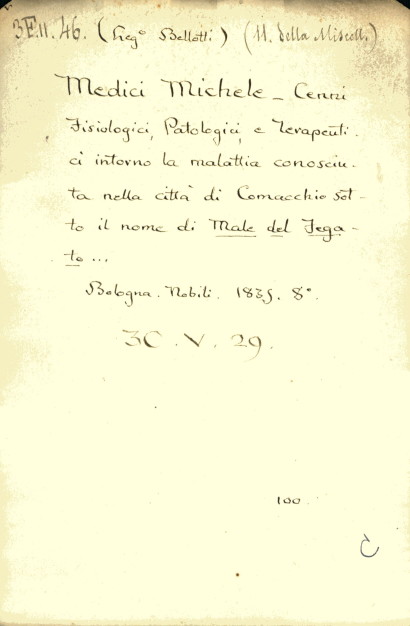 3E.11.46. (Lego Bellotti) (11. della Miscell.)
Medici Michele _ Cenni
Fisiologici, Patologici, e Terapeuti.
ci intorno la malattia conosciu-
ta nella città di Comacchio sot-
to il nome di Male del Fega-
to ...
Bologna. Nobili. 1835. 8°.
3C. V. 29.
100
C